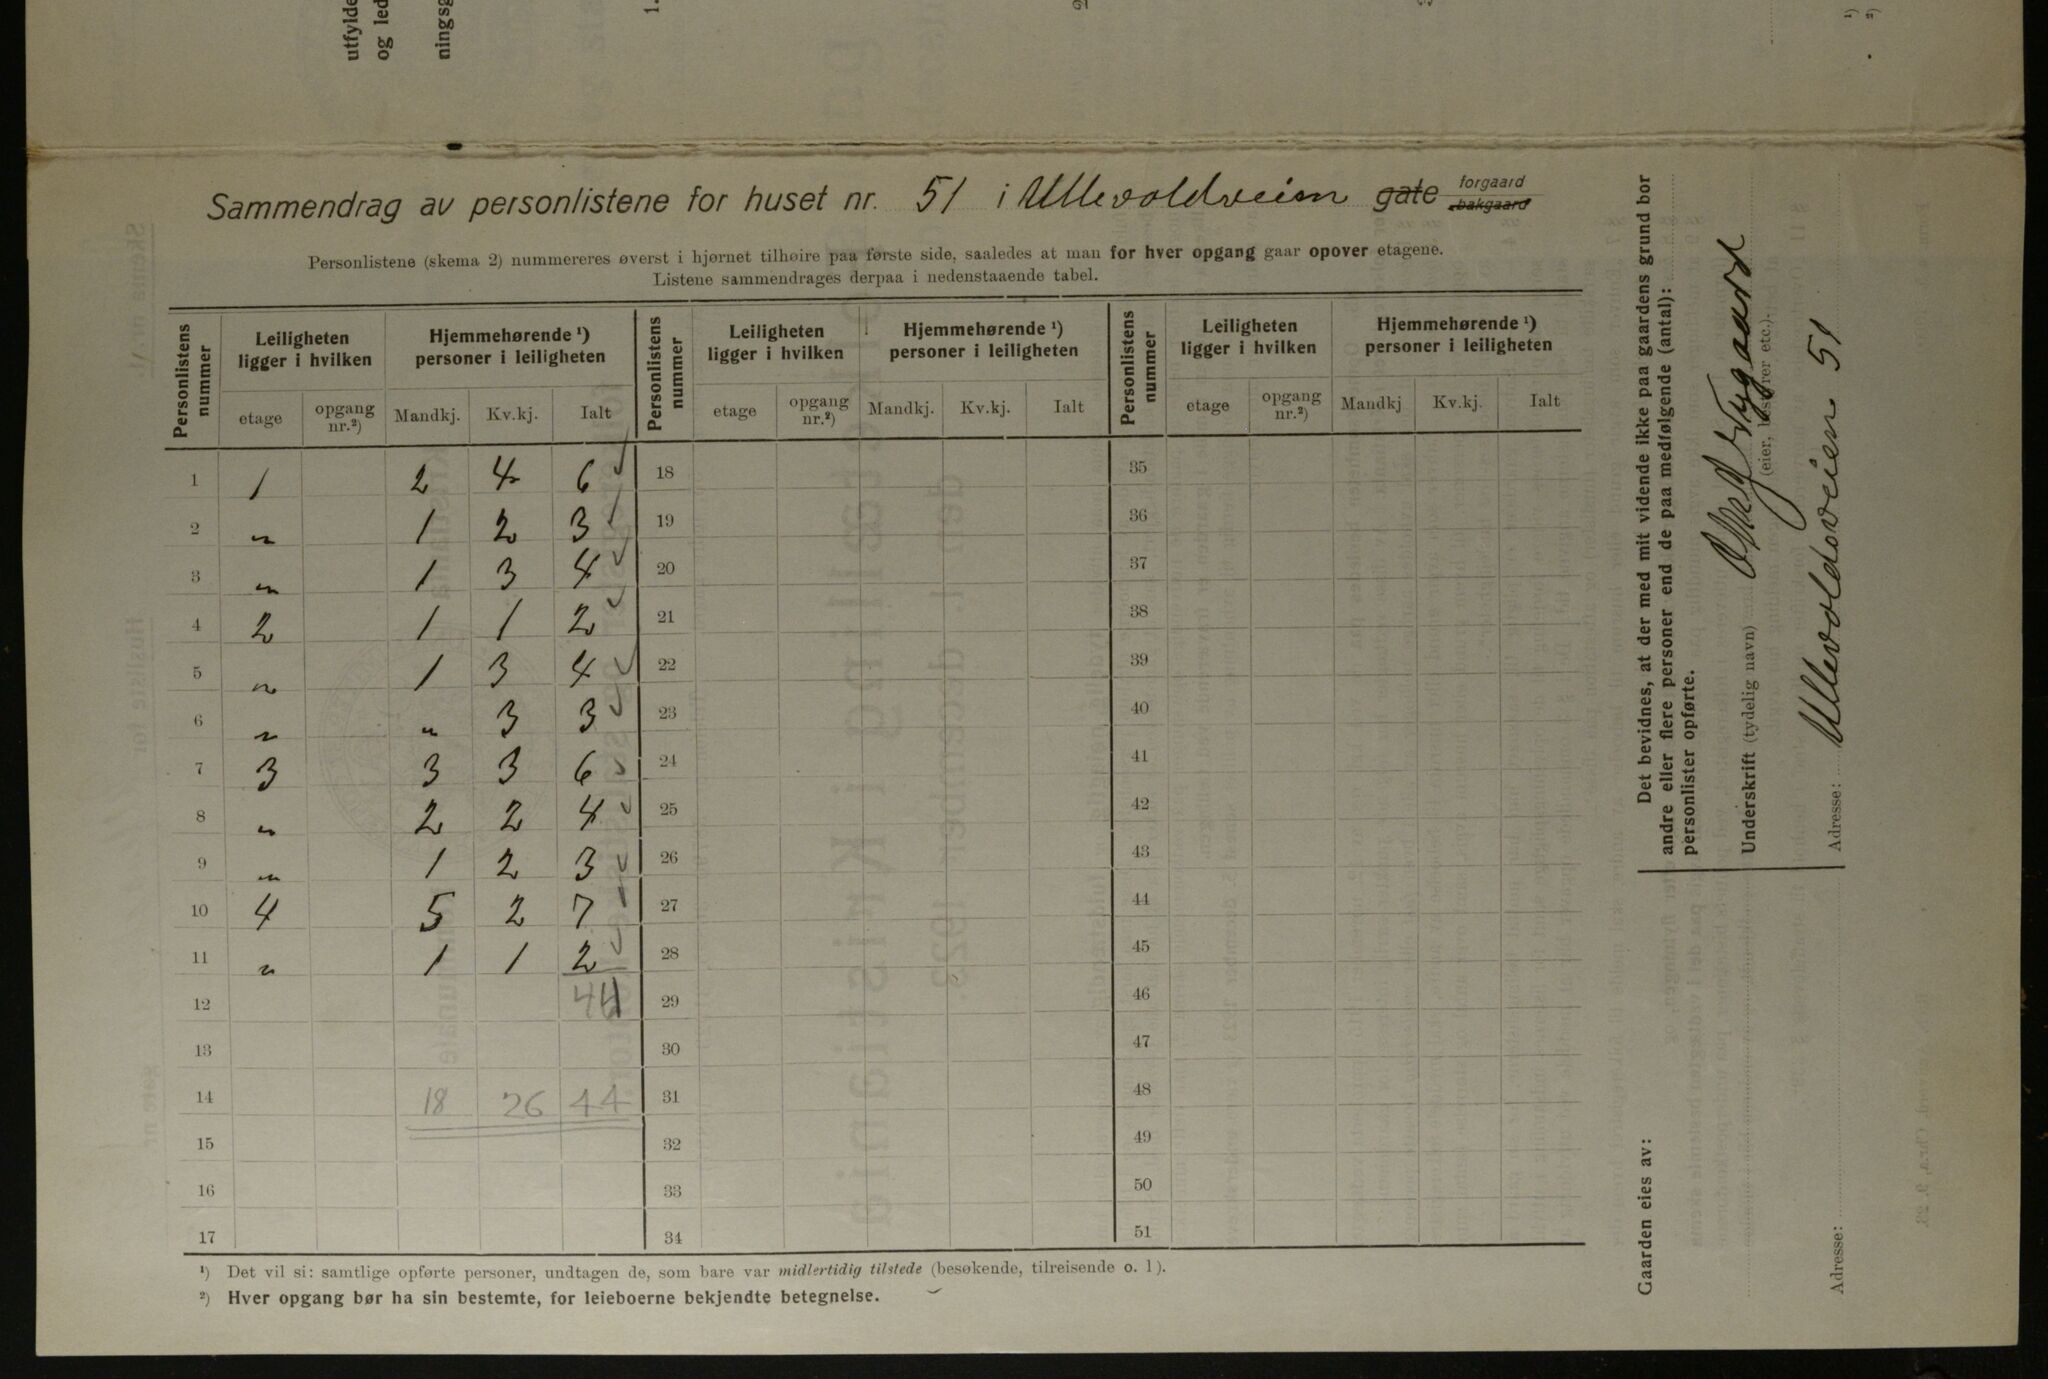 utfylde
og led
ningsg
1.
2
1)
2)
Sammendrag av personlistene for huset nr. 51 i Ullevoldsveien gate forgaard bakgaard
Personlistene (skema 2) nummereres øverst i hjørnet tilhøire paa første side, saaledes at man for hver opgang gaar opover etagene.
Listene sammendrages derpaa i nedenstaaende tabel.
Personlistens nummer Leiligheten ligger i hvilken Hjemmehørende ¹) personer i leiligheten Personlistens nummer Leiligheten ligger i hvilken Hjemmehørende ¹) personer i leiligheten Personlistens nummer Leiligheten ligger i hvilken Hjemmehørende ¹) personer i leiligheten
etage opgang nr.²) Mandkj. Kv.kj. Ialt etage opgang nr.²) Mandkj. Kv.kj. Ialt etage opgang nr.²) Mandkj Kv.kj. Ialt
1 1 2 4 6 18 35
2 " 1 2 3 19 36
3 " 1 3 4 20 37
4 2 1 1 2 21 38
5 " 1 3 4 22 39
6 " " 3 3 23 40
7 3 3 3 6 24 41
8 " 2 2 4 25 42
9 " 1 2 3 26 43
10 4 5 2 7 27 44
11 " 1 1 2 28 45
12 44 29 46
13 30 47
14 18 26 44 31 48
15 32 49
16 33 50
17 34 51
¹) Det vil si: samtlige opførte personer, undtagen de, som bare var midlertidig tilstede (besøkende, tilreisende o. l).
²) Hver opgang bør ha sin bestemte, for leieboerne bekjendte betegnelse.
Det bevidnes, at der med mit vidende ikke paa gaardens grund bor
andre eller flere personer end de paa medfølgende (antal):
personlister opførte.
Underskrift (tydelig navn) Nygaard
(eier, bestyrer etc.).
Adresse: Ullevoldsveien 51
Gaarden eies av:
Adresse: